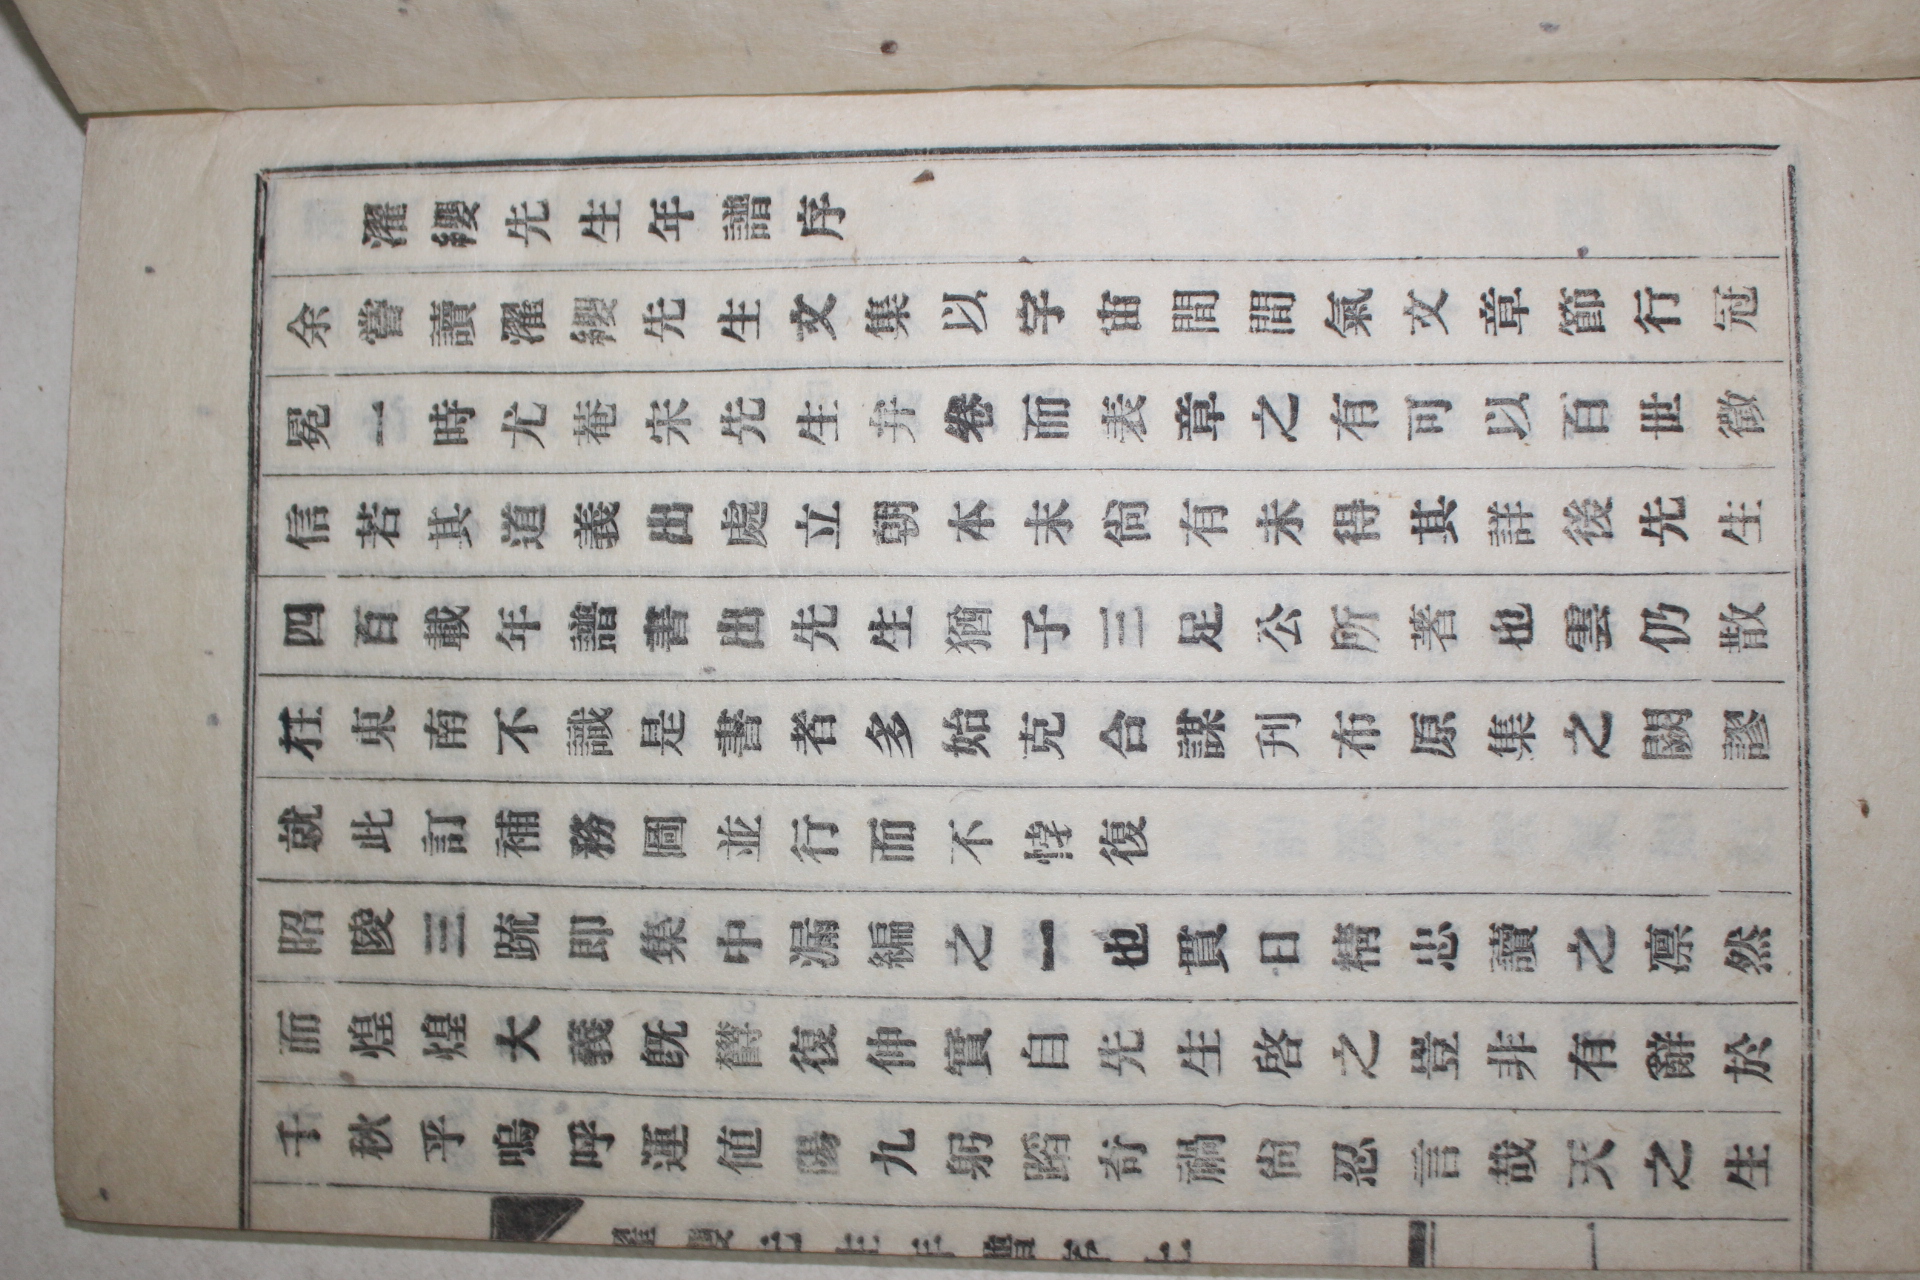 濯纓先生年譜序
余嘗讀濯纓先生文集以宇宙間間氣文章節行冠
冕一時尤菴宋先生弁卷而表章之有可以百世徵
信若其道義出處立朝本末尙有未得其詳後先生
四百載年譜書出先生猶子三足公所著也雲仍散
在東南不識是書者多始克合謀刊布原集之闕謬
就此訂補務圖並行而不悖復
昭陵三疏即集中漏編之一也貫日精忠讀之凛然
而煌煌大義旣欝復伸實自先生啓之豈非有辭於
千秋乎嗚呼運値陽九躬蹈奇禍尙忍言哉天之生
濯纓先生年譜序 一